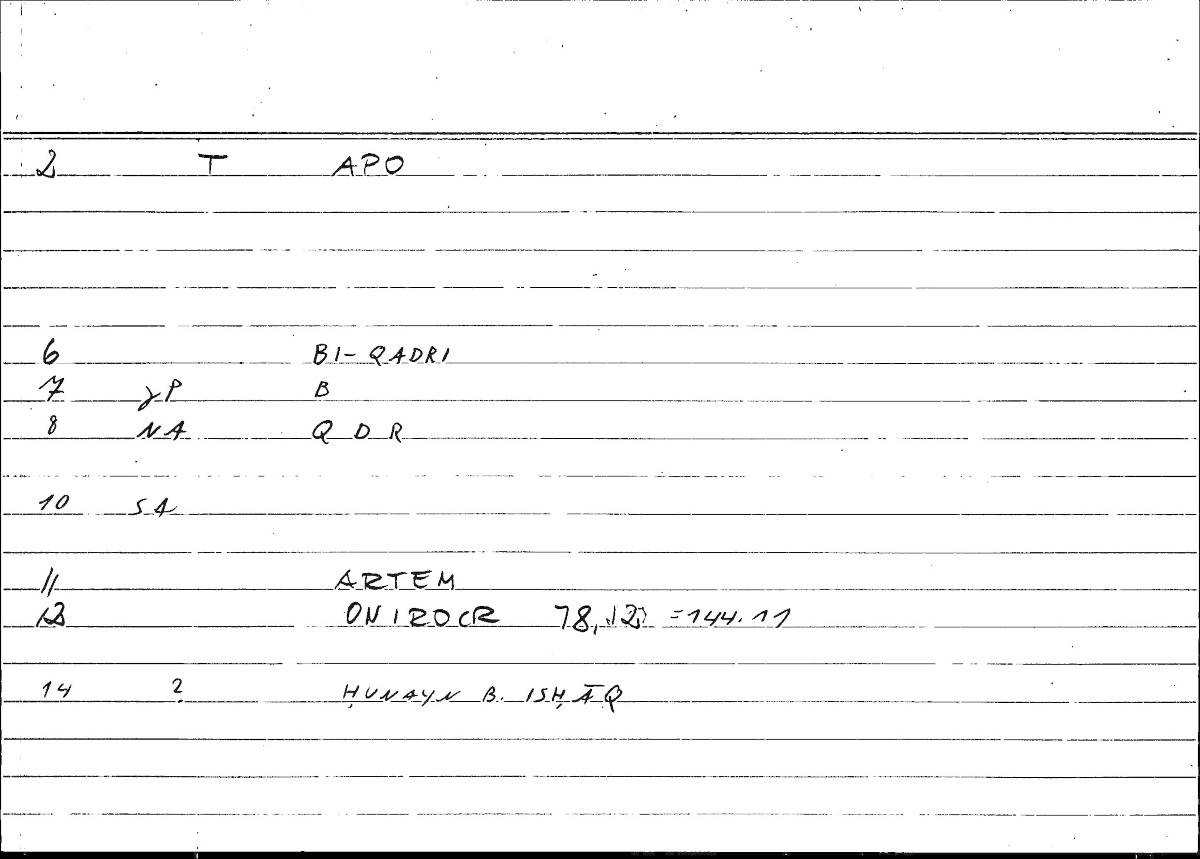 2 T APO
6 BI-QADRI
7 γP B
8 NA Q D R
10 SA
11 ARTEM
12 ONIROCR 78,12 =144.11
14 ? ḤUNAYN B. ISḤĀQ